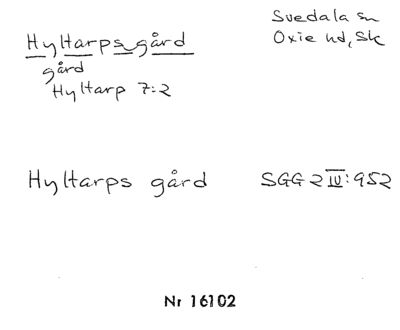 Hyltarpsgård
gård
Hyltarp 7:2
Svedala sn
Oxie hd, Sk
Hyltarps gård
SGG 2 IV:952
Nr 16102